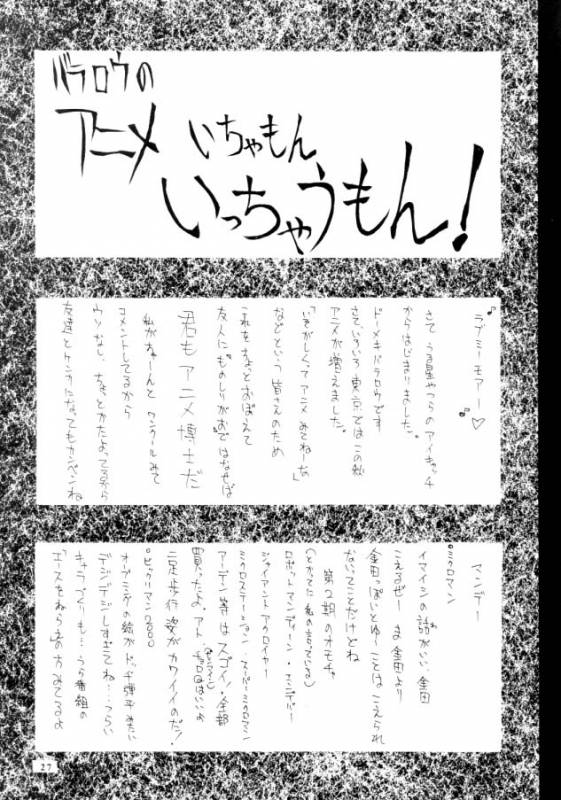 バラロウの
アニメ いちゃもん
いっちゃうもん!
ラブミーモアー♡
さて うる星やつらのアイキャッチ
からはじまりました。
ドーメキバラロウです
さて、いろいろ東京ではこの秋
アニメが増えました。
「いそがしくて アニメ みてねーなぁ」
などという 皆さんのため
これをちょっとおぼえて
友人に"ものしりがお"ではなせば
君もアニメ博士だ
私がちゃーんと ワンクールみて
コメントしてるから
ウソなし、ちょっとかたよってるから
友達とケンカになってもカンベンね
マンデー
ミクロマン
イマイシの話がいい、金田
こえるぜー ま 金田より
金田っぽいとゆーことはこえられ
ないってことだけどね
第2期のオモチャ。
(とかってに私の言っている)
ロボットマン
ジャイアント アクロイヤー
ミクロステーション・スーパーミクロマン
アーデン等はスゴイ!全部
買ったよ、アト
二足歩行 姿がカワイイのだ!
ビックリマン2000
オープニングの絵がドッヂ弾平みたい
デジデジしすぎてね…つらい
キャラづくりも…うら番組の
「エースをねらえ」の方みてるよ
27